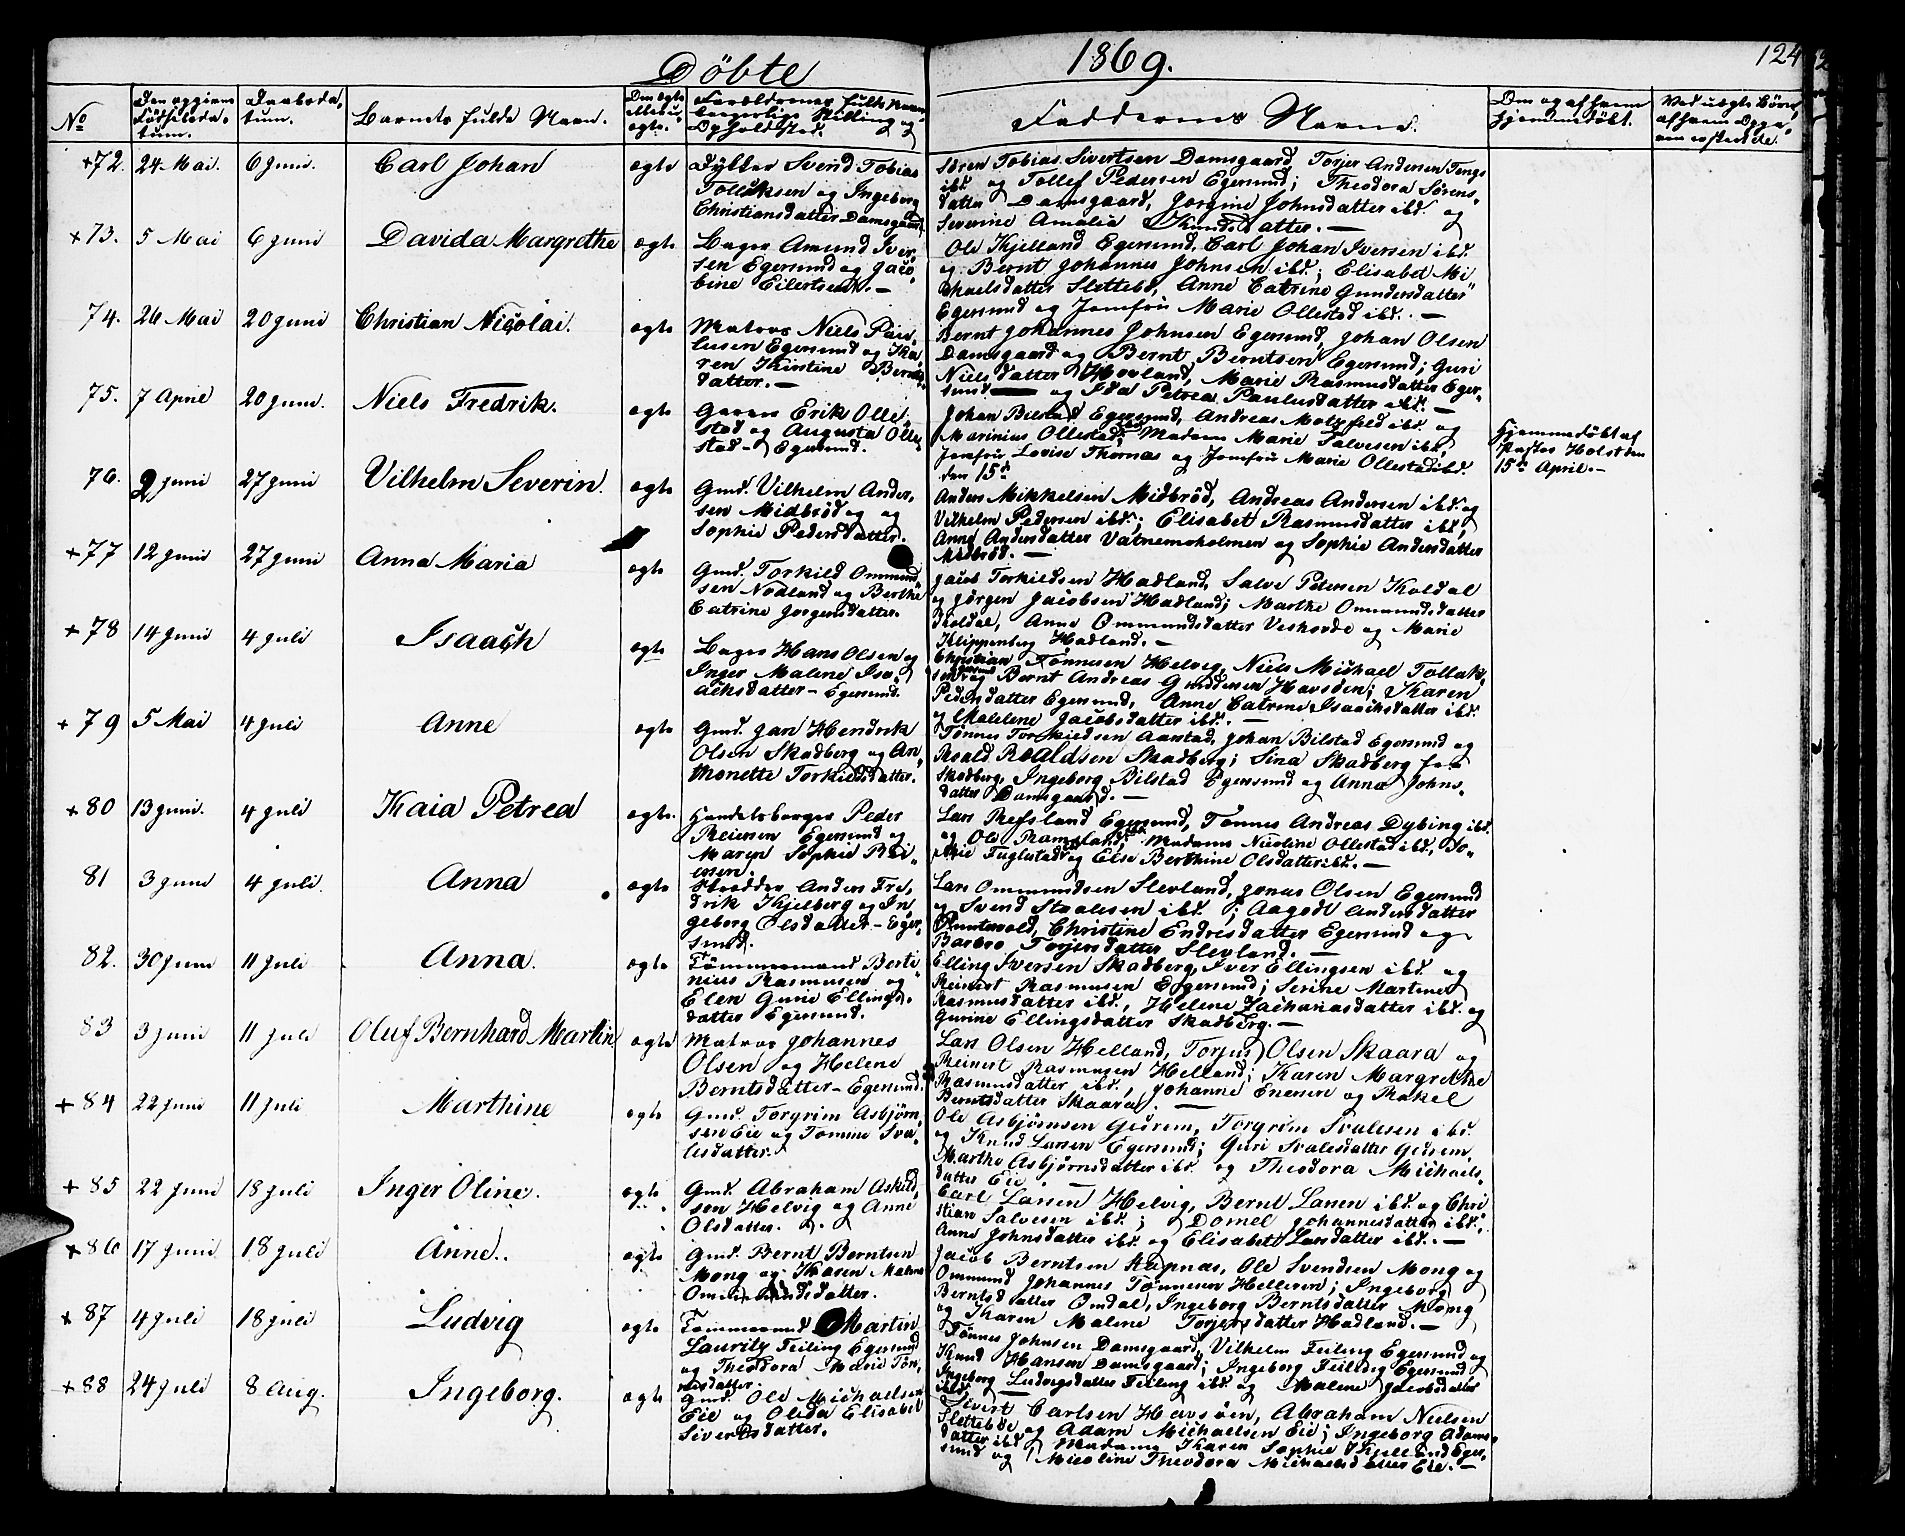 Döbte 1869. 124
No
Den opgivne Fødselsdatum.
Daabsdatum.
Barnets fulde Navn.
Om ægte eller uægte.
Forældrenes fulde Navn borgerlige Stilling og Opholdsted.
Faddernes Navne.
Om og af hvem hjemmedöbt.
Ved uægte Börn, af hvem
+72. 24 Mai. 6 Juni. Carl Johan ægte
Fylller Svend Tobias
Tollaksen og Ingeborg
Christiansdatter Damsgaard
Sören Tobias Sivertsen Damsgaard, Torjer Andersen Tengs
ibd. og Tollef Pedersen Egersund; Theodora Sörens-
datter Damsgaard, Jorgine Johnsdatter ibd. og
Severine Amalia Knudsdatter. —
+73. 5 Mai 6 Juni Davida Margrethe ægte
Bager Amund Iver-
sen Egersund og Jaco-
bine Eilertsen. —
Ole Kjelland Egersund, Carl Johan Iversen ibd.
og Bernt Johannes Johnsen ibd.; Elisabet Mi
chaelsdatter Slettebö, Anne Catrine Gundersdatter
Egersund og Jomfru Marie Ollestad ibd. —
74. 26 Mai 20 Juni Christian Nicolai. ægte
Matros Niels Pau-
lusen Egersund og Ka-
ren Kirstine Bernts-
datter. —
Bernt Johannes Johnsen Egersund, Johan Olsen
Damsgaard og Bernt Berntsen Egersund; Guri
Nielsdatter Hovland, Marie Rasmusdatter Eger-
sund og Ida Petrea Paulusdatter ibd. —
75. 7 April 20 Juni. Niels Fredrik. ægte
Garver Erik Olle-
stad og Augusta Olle-
stad - Egersund.
Johan Bilstad Egersund, Andreas Motzfeld ibd. og
Marinius Ollestad ibd., Madam Marie Salvesen ibd.,
Jomfru Lovise Thornæs og Jomfru Marie Ollestad ibd.
den 15d
Hjemmedöbt af
Pastor Holst den
15de April. —
76. 2 Juni 27 Juni Vilhelm Severin. ægte
Gmd. Vilhelm Ander-
sen Midbröd og
Sophie Pedersdatter.
Anders Mikkelsen Midbröd, Andreas Andersen ibd. og
Vilhelm Pedersen ibd.; Elisabet Rasmusdatter ibd.,
Anne Andersdatter Vatnemoholmen og Sophie Andersdatter
Midbröd. —
+77 12 Juni 27 Juni Anna Maria ægte
Gmd. Torkild Ommund-
sen Nodland og Berthe
Catrine Jorgensdatter.
Jacob Torkildsen Hadland, Salve Petersen Koldal
og Jörgen Jacobsen Hadland; Marthe Ommundsdatter
Koldal, Anne Ommundsdatter Veshovde og Marie
Klippenberg Hadland. —
+78 14 Juni 4 Juli Isaach ægte
Bager Hans Olsen og
Inger Malene Isa-
achsdatter - Egersund.
Christian Tönnesen Helvig, Niels Michael Tollak-
sen Egersund og Bernt Andreas Gundersen Havsöen; Karen
Pedersdatter Egersund, Anne Catrine Isaachsdatter ibd.
og Malene Jacobsdatter ibd. —
+79 5 Mai 4 Juli Anne ægte
Gmd. Jan Hendrik
Olsen Skadberg og An
thonette Torkildsdatter.
Tönnes Torkildsen Aarstad, Johan Bilstad Egersund og
Roald Roaldsen Skadberg; Sina Skadberg fra
Skadberg, Ingeborg Bilstad Egersund og Anna Johns-
datter Damsgaard. —
+80 13 Juni. 4 Juli Kaia Petrea ægte.
Handelsborger Peder
Reiersen Egersund og
Maren Sophie Rei-
ersen.
Lars Refsland Egersund, Tönnes Andreas Dybing ibd.
og Ole Ramsland ibd.; Madame Nicoline Ollestad ibd., So-
phie Fuglestad og Else Berthine Olsdatter ibd. —
81 3 Juni 4 Juli. Anna ægte
Skrædder Anders Fre-
drik Kjelberg og In
geborg Olsdatter - Eger-
sund.
Lars Ommundsen Slevland, Jonas Olsen Egersund
og Svend Staalesen ibd.; Aagodt Andersdatter
Puntervold, Christine Endresdatter Egersund og
Barbro Torjersdatter Slevland. —
82. 30 Juni 11 Juli Anna. ægte
Tömmermand Berti-
nius Rasmusen og
Elen Gurie Ellings-
datter Egersund.
Elling Iversen Skadberg, Iver Ellingsen ibd. og
Reinert Rasmusen Egersund; Serine Martine
Rasmusdatter ibd., Helene Zachariasdatter ibd. og
Gurine Ellingsdatter Skadberg. —
83 3 Juni 11 Juli Oluf Bernhard Martin ægte
Matros Johannes
Olsen og Helene
Berntsdatter - Egersund.
Lars Olsen Helland, Torjus Olsen Skaara og
Reinert Rasmusen Helland; Karen Margrethe
Rasmusdatter ibd., Johanne Enersen og Rakel
Berntsdatter Skaara. —
+84 22 Juni 11 Juli Marthine ægte
Gmd. Torgrim Asbjörn-
sen Eie og Tomine Sva-
lesdatter.
Ole Asbjörnsen Gidrem, Torgrim Svalesen ibd.
og Knud Larsen Egersund; Guri Svalesdatter Gidrem,
Marthe Asbjörnsdatter ibd. og Theodora Michaels-
datter Eie. —
+85 22 Juni 18 Juli Inger Oline. ægte
Gmd. Abraham Askild-
sen Helvig og Anne
Olsdatter.
Carl Larsen Helvig, Bernt Larsen ibd. og Chri
stian Salvesen ibd.; Domel Johannesdatter ibd.,
Anne Johnsdatter ibd. og Elisabet Larsdatter ibd. —
+86 17 Juni 18 Juli Anne. ægte
Gmd. Bernt Berntsen
Mong og Karen Malene
Ommundsdatter.
Jacob Berntsen Stapnæs, Ole Svendsen Mong og
Ommund Johannes Tönnesen Helleren; Ingeborg
Berntsdatter Omdal, Ingeborg Berntsdatter Mong
og Karen Malene Torjersdatter Hadland. —
+87 4 Juli 18 Juli Ludvig ægte
Tömmermand Martin
Lauritz Feiling Egersund
og Theodora Marie Tön-
nesdatter.
Tönnes Johnsen Damsgaard, Vilhelm Feiling Egersund og
Knud Hansen Damsgaard; Ingeborg Feiling Egersund,
Ingeborg Ludvigsdatter Feiling ibd. og Malene Jacobsdatter
ibd. —
+88 24 Juli 8 Aug. Ingeborg. ægte
Gmd. Ole Michaelsen
Eie og Olida Elisabet
Sivertsdatter.
Sivert Carlsen Havsöen, Abraham Nielsen
Slettebö og Adam Michaelsen Eie; Ingeborg Adams-
datter ibd., Madame Karen Sophie Kjelland Eger-
sund og Nicoline Theodora Michaelsdatter Eie. —